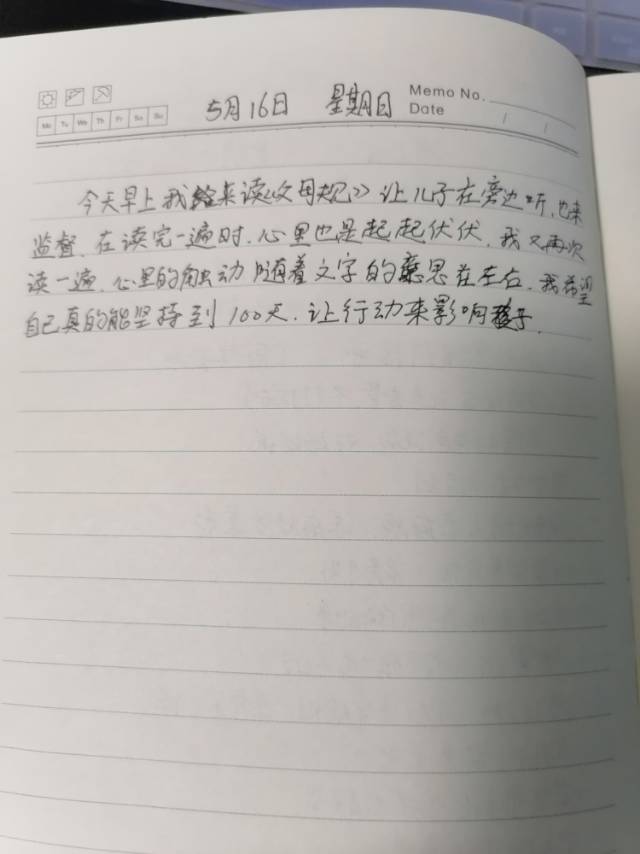 Memo No.
5月16日 星期日
Date / /
Mo Tu We Th Fr Sa Su
今天早上我来读《父母规》让儿子在旁边听,也来
监督.在读完一遍时.心里也是起起伏伏.我又再次
读一遍.心里的触动随着文字的意思在左右.我希望
自己真的能坚持到100天.让行动来影响孩子.